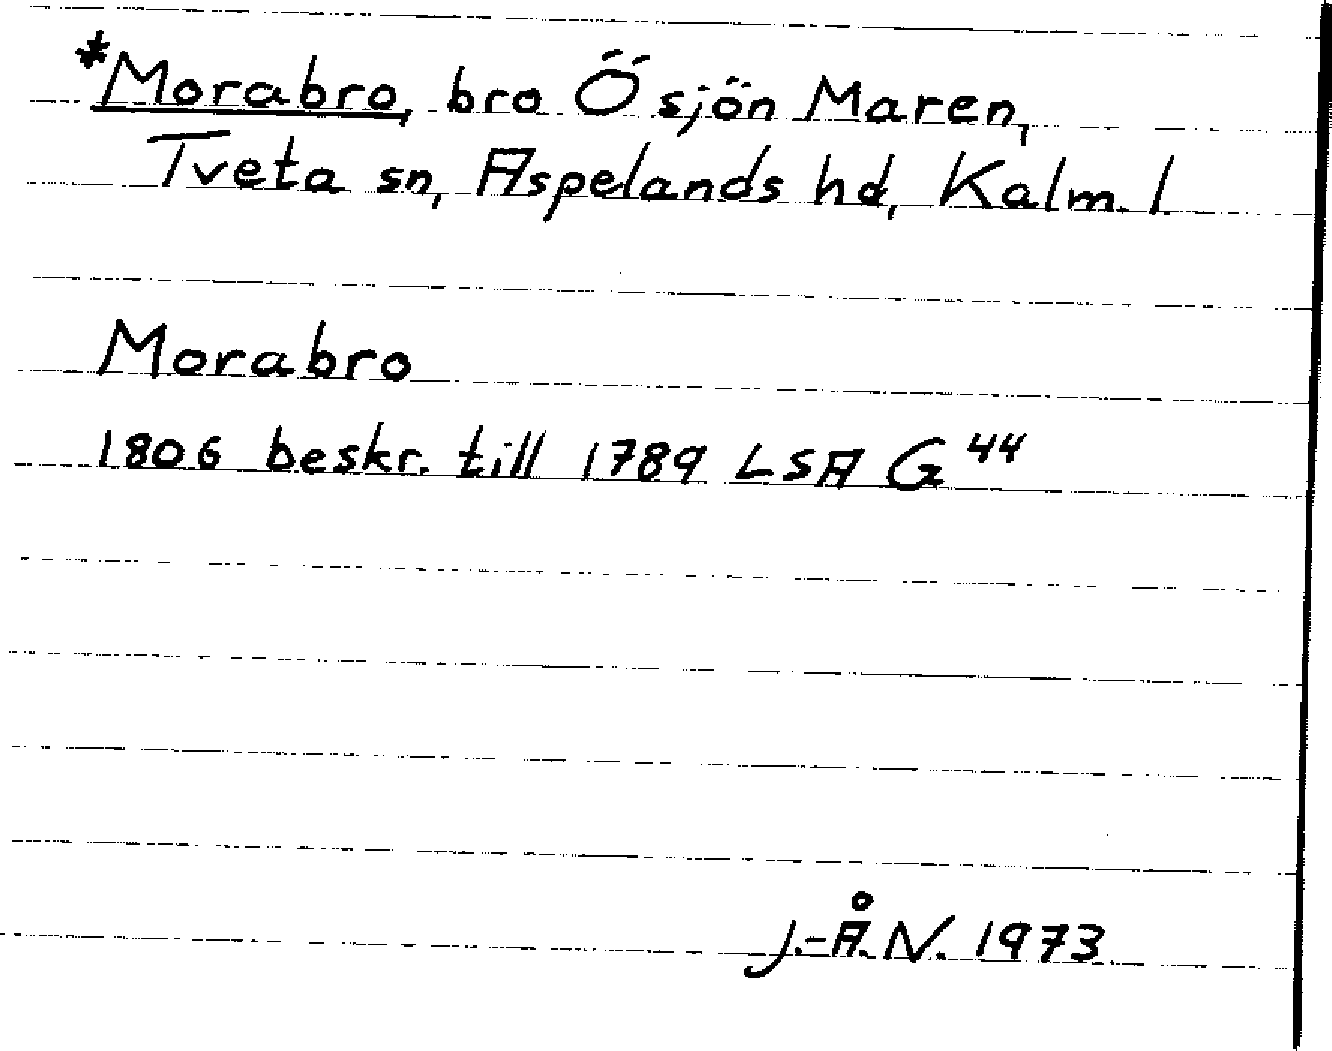 *Morabro, bro Ö sjön Maren,
Tveta sn, Aspelands hd, Kalm. l.
Morabro
1806 beskr. till 1789 LSA G 44
J.-Å. N. 1973